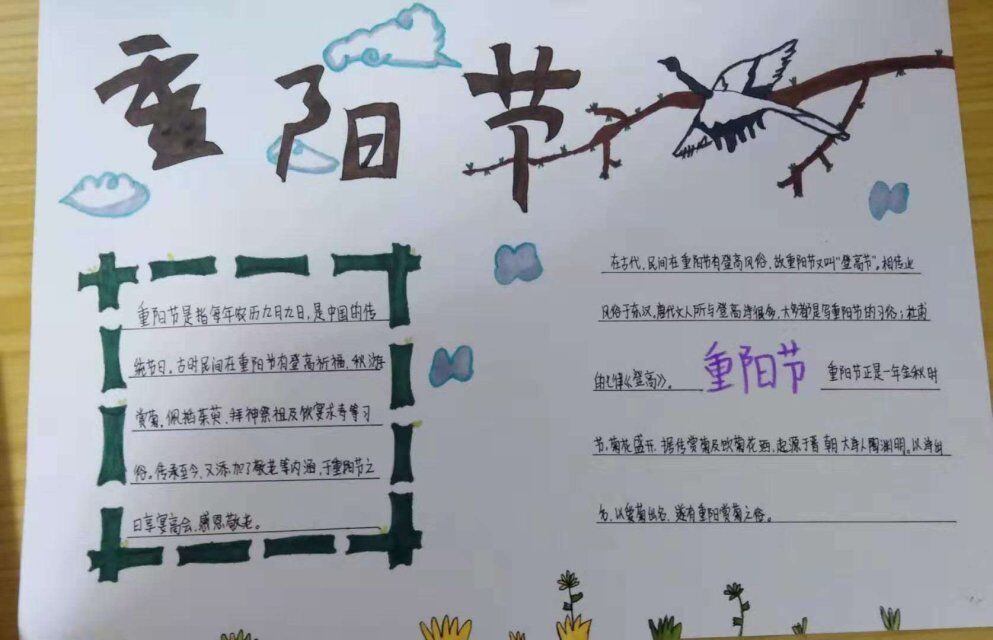 重阳节
重阳节是指每年农历九月九日,是中国的传
统节日。古时民间在重阳节有登高祈福、秋游
赏菊、佩插茱萸、拜神祭祖及饮宴求寿等习
俗。传承至今,又添加了敬老等内涵,于重阳节之
日享宴高会,感恩敬老。
在古代,民间在重阳节有登高风俗,故重阳节又叫“登高节”。相传此
风俗于东汉,唐代文人所写登高诗很多,大多都是写重阳节的习俗;杜甫
的七律《登高》。
重阳节
重阳节正是一年金秋时
节,菊花盛开,据传赏菊及饮菊花酒,起源于晋朝大诗人陶渊明。以诗出
名,以爱菊出名,遂有重阳赏菊之俗。